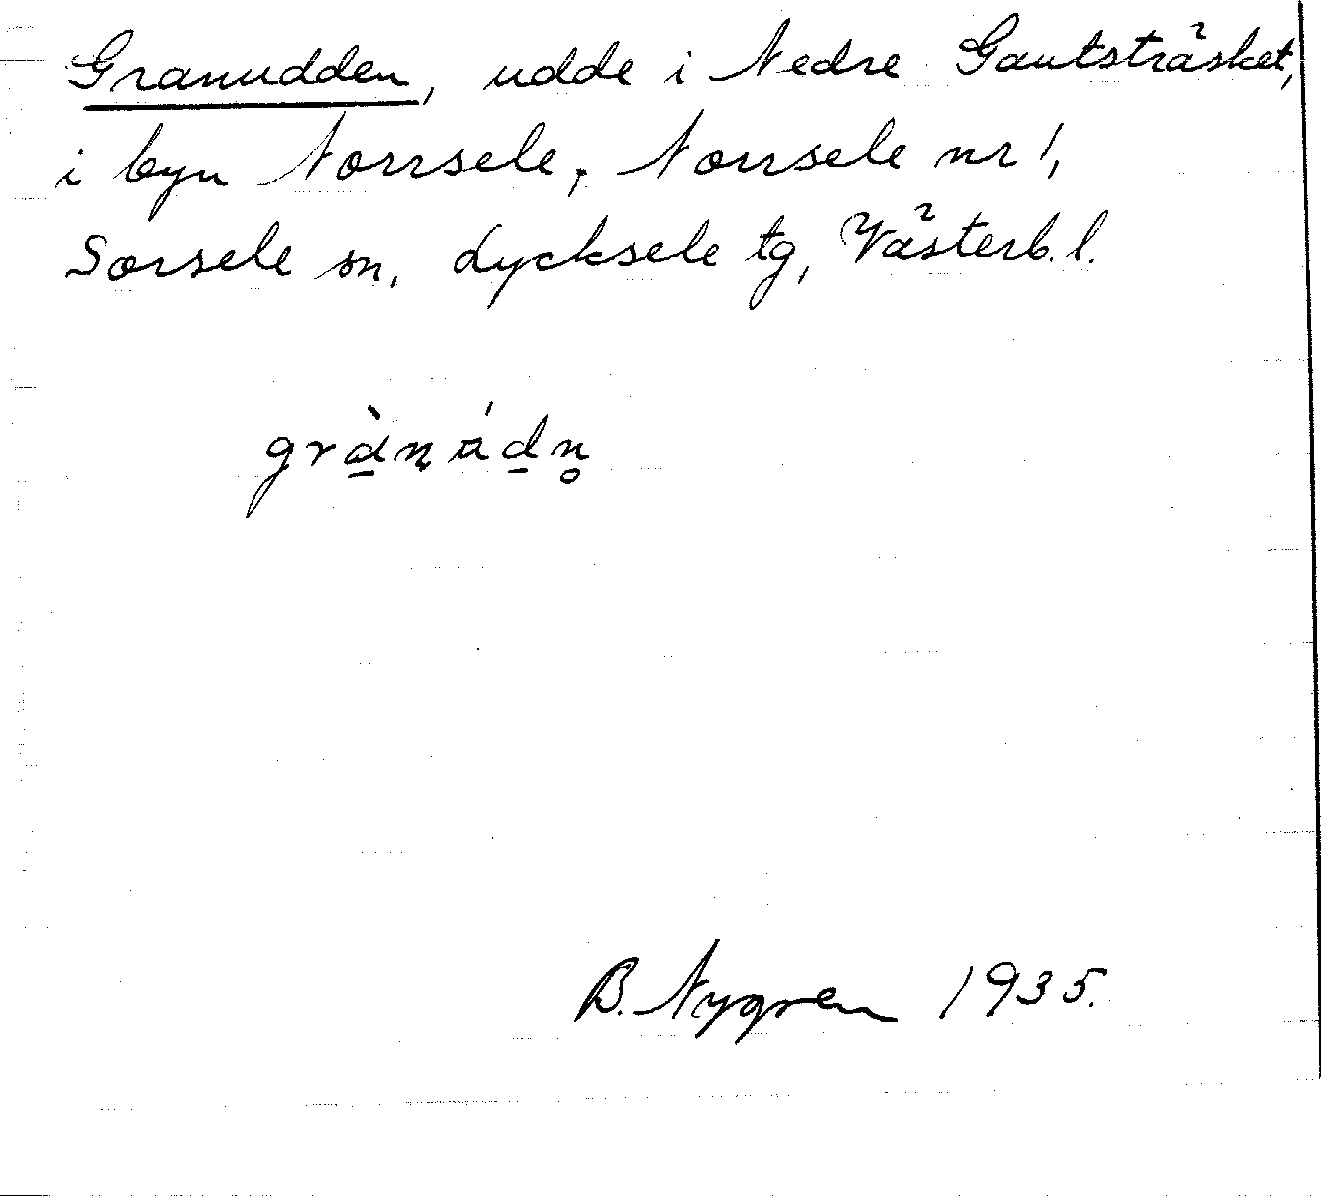 Granudden, udde i Nedre Gautsträsket,
i byn Norrsele, Norrsele nr 1,
Sorsele sn, Lycksele tg, Västerb. l.
B. Nygren 1935.